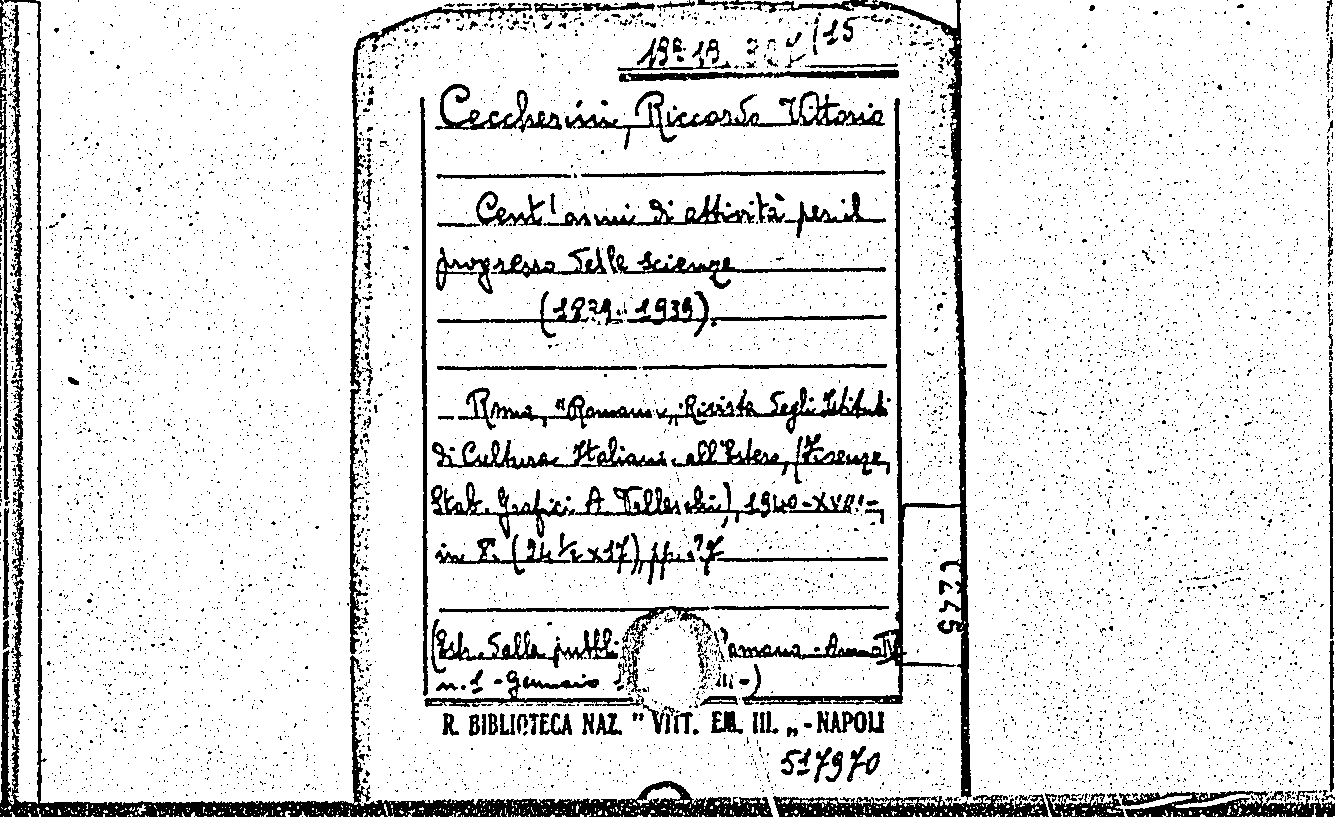 /15
Ceccherini, Riccardo Vittorio
Cent'anni di attività per il
progresso delle scienze
(1839-1939).
Roma, "Romana„, Rivista degli Istituti
di Cultura Italiana all'Estero, (Firenze,
Stab. Grafici A Vallecchi), 1940-XVIII-,
in 8°. (24 ½ x 17), pp. 7
(Estr. dalla pubbli omana - Anno IV
n. 1 - Gennaio
R. BIBLIOTECA NAZ. " VITT. EM. III. „ - NAPOLI
517970